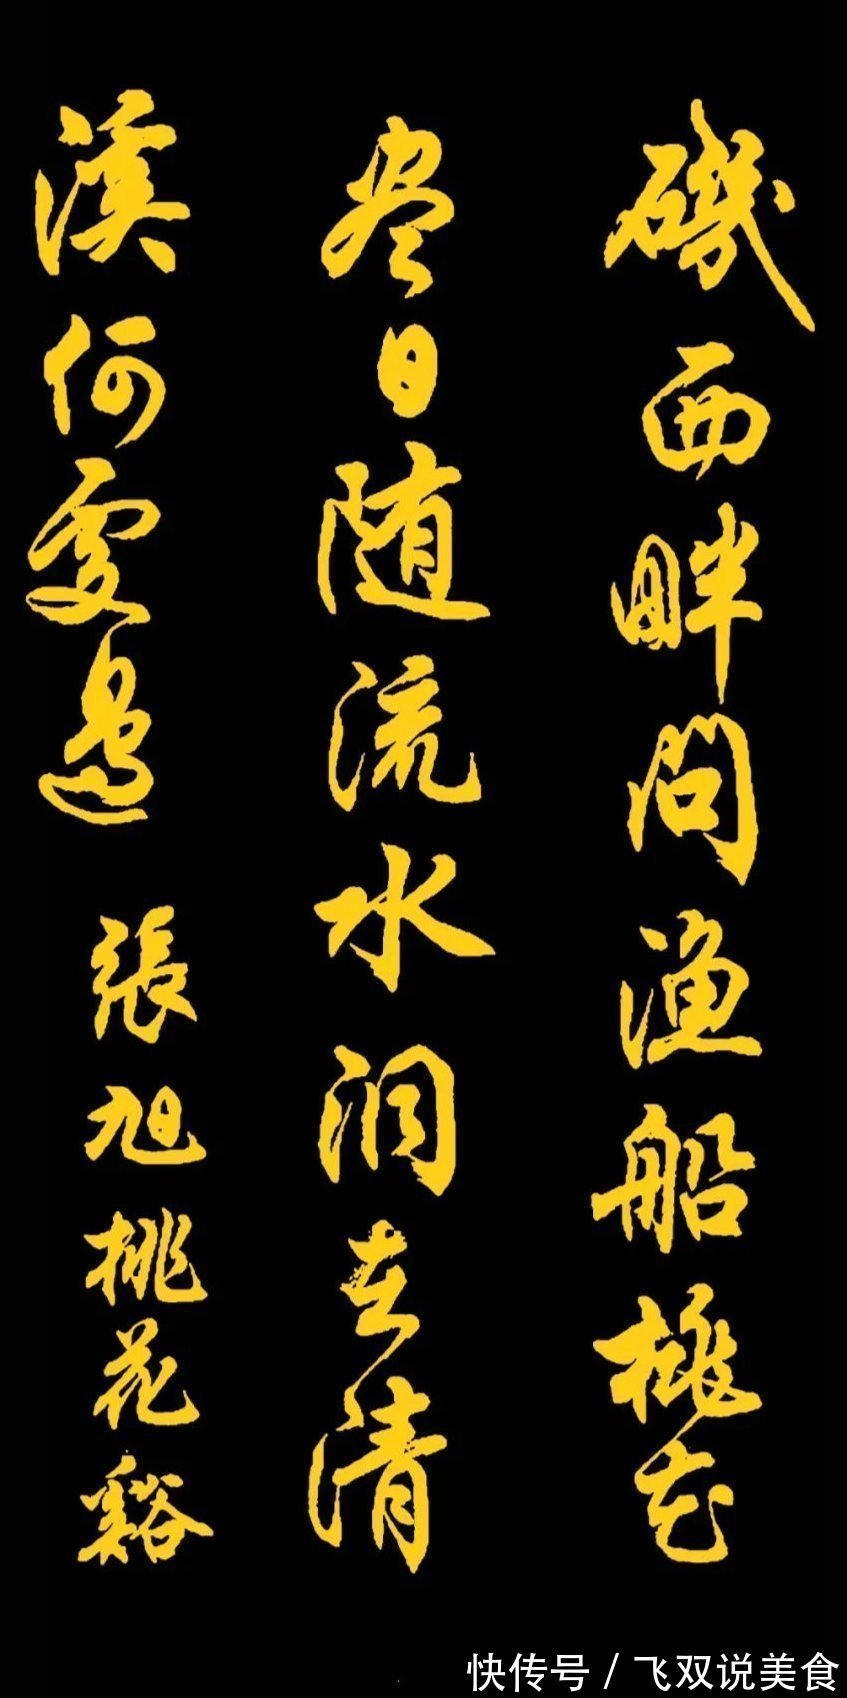 磯西畔問渔船桃花
尽日随流水洞在清
溪何處邊
張旭桃花谿
快传号 / 飞双说美食